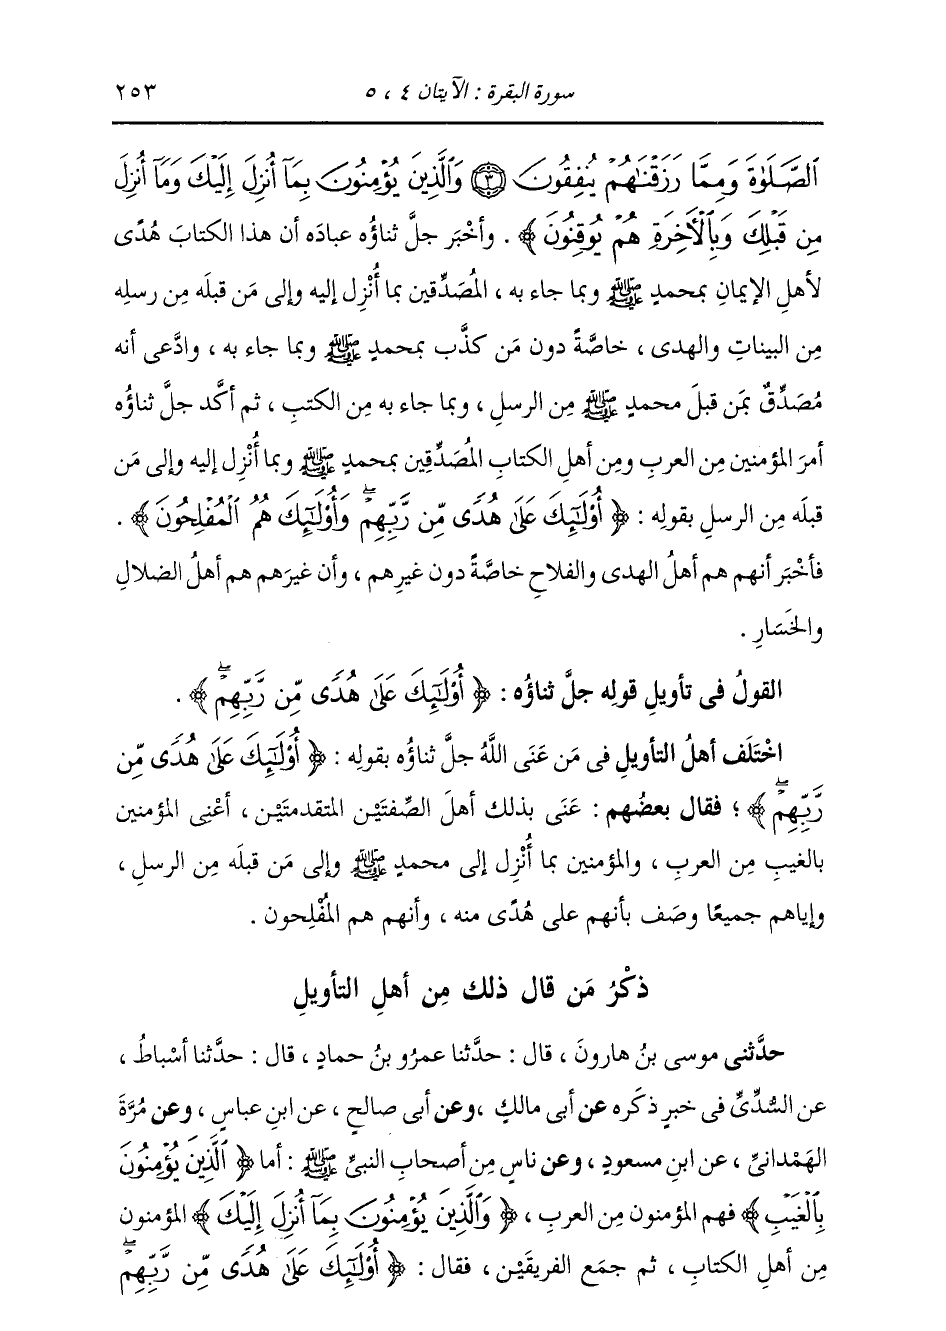 سورة البقرة : الآيتان ٤ ، ٥ ٢٥٣
ٱلصَّلَوٰةَ وَمِمَّا رَزَقْنَـٰهُمْ يُنفِقُونَ ﴿٣﴾ وَٱلَّذِينَ يُؤْمِنُونَ بِمَآ أُنزِلَ إِلَيْكَ وَمَآ أُنزِلَ
مِن قَبْلِكَ وَبِٱلْأَخِرَةِ هُمْ يُوقِنُونَ ﴾ . وأخْبَر جلَّ ثناؤُه عبادَه أن هذا الكتابَ هُدًى
لأهلِ الإيمانِ بمحمدٍ ﷺ وبما جاء به ، المُصَدِّقين بما أُنْزِل إليه وإلى مَن قبلَه مِن رسلِه
مِن البيناتِ والهدى ، خاصَّةً دون مَن كذَّب بمحمدٍ ﷺ وبما جاء به ، وادَّعى أنه
مُصَدِّقٌ بمَن قبلَ محمدٍ ﷺ مِن الرسلِ ، وبما جاء به مِن الكتبِ ، ثم أكَّد جلَّ ثناؤُه
أمرَ المؤمنين مِن العربِ ومِن أهلِ الكتابِ المُصَدِّقِين بمحمدٍ ﷺ وبما أُنْزِل إليه وإلى مَن
قبلَه مِن الرسلِ بقولِه : ﴿ أُوْلَـٰٓئِكَ عَلَىٰ هُدًى مِّن رَّبِّهِمْ ۖ وَأُوْلَـٰٓئِكَ هُمُ ٱلْمُفْلِحُونَ ﴾ .
فأخْبَر أنهم هم أهلُ الهدى والفلاحِ خاصَّةً دون غيرِهم ، وأن غيرَهم هم أهلُ الضلالِ
والخَسَارِ .
القولُ فى تأويلِ قولِه جلَّ ثناؤُه : ﴿ أُوْلَـٰٓئِكَ عَلَىٰ هُدًى مِّن رَّبِّهِمْ ۖ ﴾ .
اخْتَلَف أهلُ التأويلِ فى مَن عَنَى اللَّهُ جلَّ ثناؤُه بقولِه : ﴿ أُوْلَـٰٓئِكَ عَلَىٰ هُدًى مِّن
رَّبِّهِمْ ۖ ﴾ ؛ فقال بعضُهم : عَنَى بذلك أهلَ الصِّفتَيْن المتقدمتَيْن ، أعْنِى المؤمنين
بالغيبِ مِن العربِ ، والمؤمنين بما أُنْزِل إلى محمدٍ ﷺ وإلى مَن قبلَه مِن الرسلِ ،
وإياهم جميعًا وصَف بأنهم على هُدًى منه ، وأنهم هم المُفْلِحون .
ذكْرُ مَن قال ذلك مِن أهلِ التأويلِ
حدَّثنى موسى بنُ هارونَ ، قال : حدَّثنا عمرُو بنُ حمادٍ ، قال : حدَّثنا أسْباطُ ،
عن السُّدِّىِّ فى خبرٍ ذكَره عن أبى مالكٍ ،وعن أبى صالحٍ ، عن ابنِ عباسٍ ، وعن مُرَّةَ
الهَمْدانىِّ ، عن ابنِ مسعودٍ ، وعن ناسٍ مِن أصحابِ النبىِّ ﷺ : أما ﴿ ٱلَّذِينَ يُؤْمِنُونَ
بِٱلْغَيْبِ ﴾ فهم المؤمنون مِن العربِ ، ﴿ وَٱلَّذِينَ يُؤْمِنُونَ بِمَآ أُنزِلَ إِلَيْكَ ﴾ المؤمنون
مِن أهلِ الكتابِ ، ثم جمَع الفريقَيْن ، فقال : ﴿ أُوْلَـٰٓئِكَ عَلَىٰ هُدًى مِّن رَّبِّهِمْ ۖ